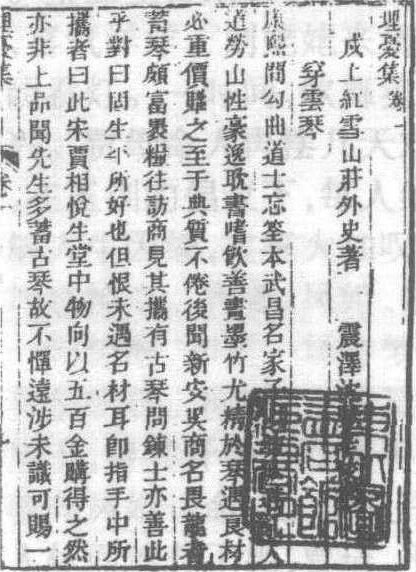 埋憂集卷一
戍上紅雪山莊外史著 震澤
穿雲琴
康熙間勾曲道士忘筌本武昌名家子人
道勞山性豪逸耽書嗜飲善畫墨竹尤精於琴遇良材
必重價購之至于典質不倦後聞新安吳商名畏龍者
蓄琴頗富裹糧往訪商見其攜有古琴問鍊士亦善此
乎對曰固生平所好也但恨未遇名材耳卽指手中所
攜者曰此宋賈相悅生堂中物向以五百金購得之然
亦非上品聞先生多蓄古琴故不憚遠涉未識可賜一
埋憂集 卷一